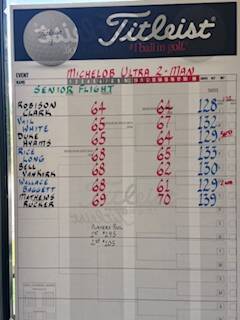 Titleist
#1 ball in golf.
EVENT MICHELOB ULTRA 2-MAN
NAME
SENIOR FLIGHT
ROBISON CLARK 64 64 128
VAIL WHITE 65 67 132
DUKE HYAMS 65 64 129
RICE LONG 68 65 133
BELL VANKIRK 68 62 130
WALLACE BAGGETT 68 61 129
MATHEWS RUCKER 69 70 139
Titleist
PLAYERS POOL
1ST $195
2ND $105